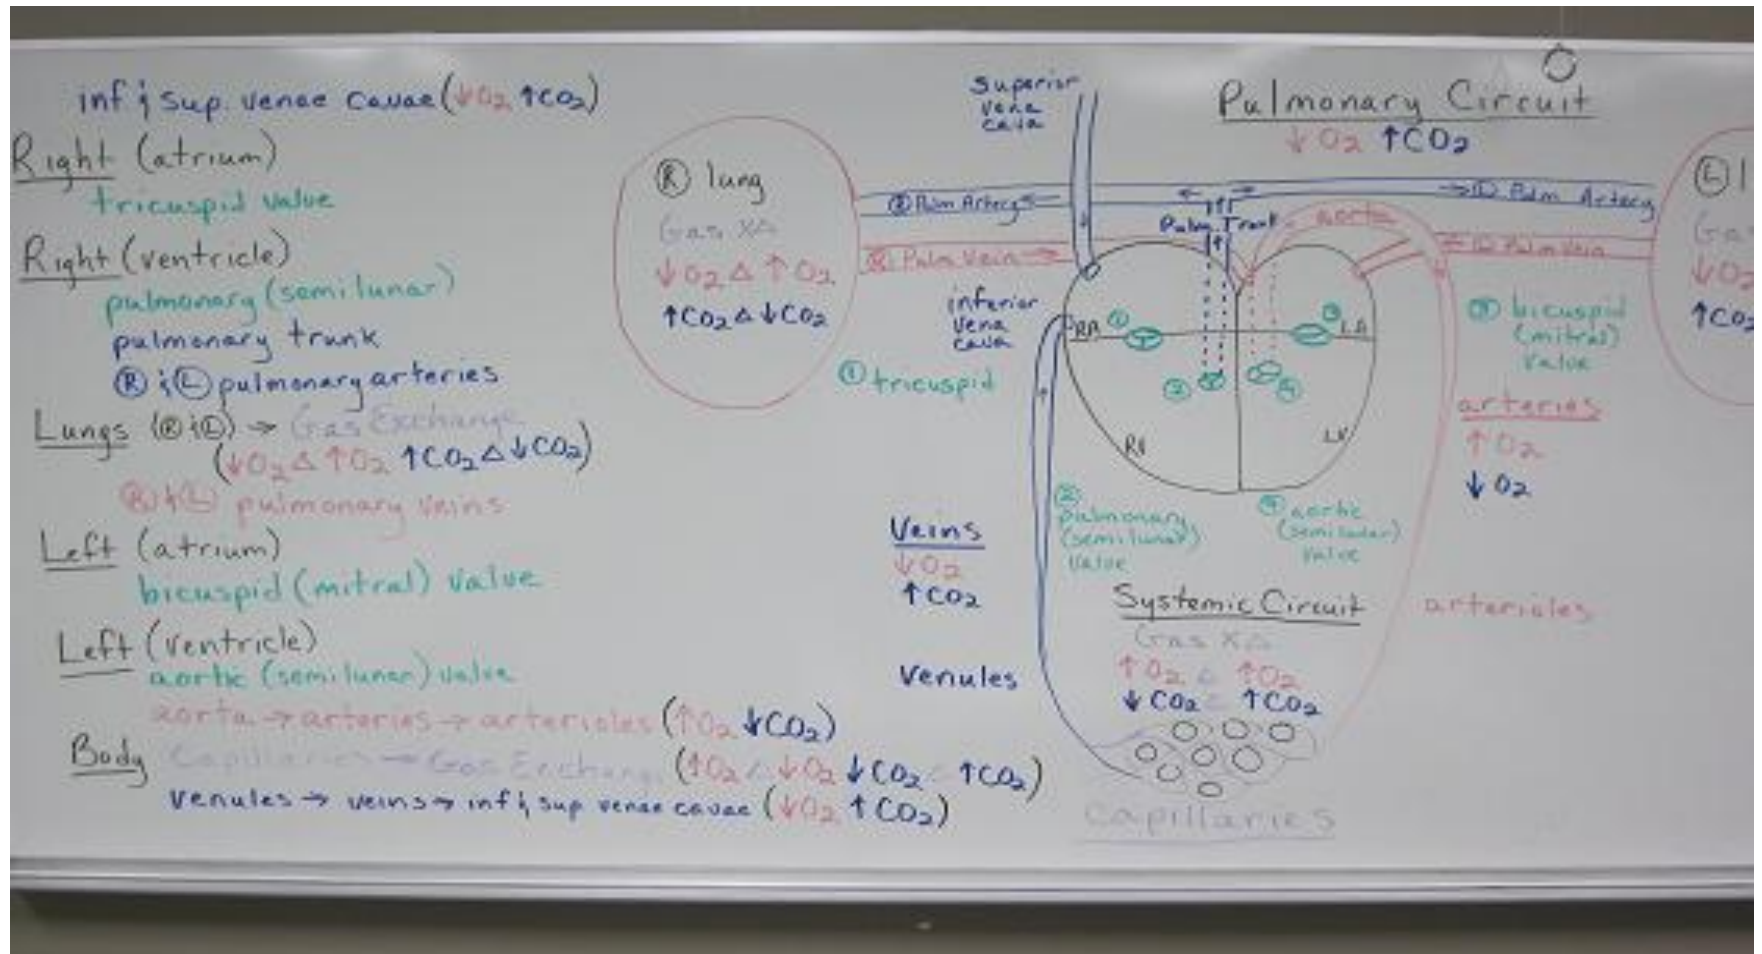 inf & sup. venae cavae (↓O₂ ↑CO₂)
Right (atrium)
tricuspid valve
Right (ventricle)
pulmonary (semilunar)
pulmonary trunk
Ⓡ & Ⓛ pulmonary arteries
Lungs (Ⓡ & Ⓛ) → Gas Exchange
(↓O₂ Δ ↑O₂ ↑CO₂ Δ ↓CO₂)
Ⓡ & Ⓛ pulmonary veins
Left (atrium)
bicuspid (mitral) valve
Left (ventricle)
aortic (semilunar) valve
aorta → arteries → arterioles (↑O₂ ↓CO₂)
Body Capillaries → Gas Exchange (↑O₂ Δ ↓O₂ ↓CO₂ Δ ↑CO₂)
venules → veins → inf & sup venae cavae (↓O₂ ↑CO₂)
Superior
vena
cava
Pulmonary Circuit
↓O₂ ↑CO₂
Ⓡ lung
Gas XΔ
↓O₂ Δ ↑O₂
↑CO₂ Δ ↓CO₂
Ⓡ Pulm Artery
Ⓡ Pulm Vein →
Pulm. Trunk
aorta
→ Ⓛ Pulm Artery
← Ⓛ Pulm Vein
Ⓛ l
Gas
↓O₂
↑CO₂
inferior
vena
cava
RA ①
③ LA
② ④
RV LV
① tricuspid
③ bicuspid
(mitral)
valve
② pulmonary
(semilunar)
valve
④ aortic
(semilunar)
valve
arteries
↑O₂
↓O₂
Veins
↓O₂
↑CO₂
Venules
arterioles
Systemic Circuit
Gas XΔ
↑O₂ Δ ↑O₂
↓CO₂ Δ ↑CO₂
Capillaries